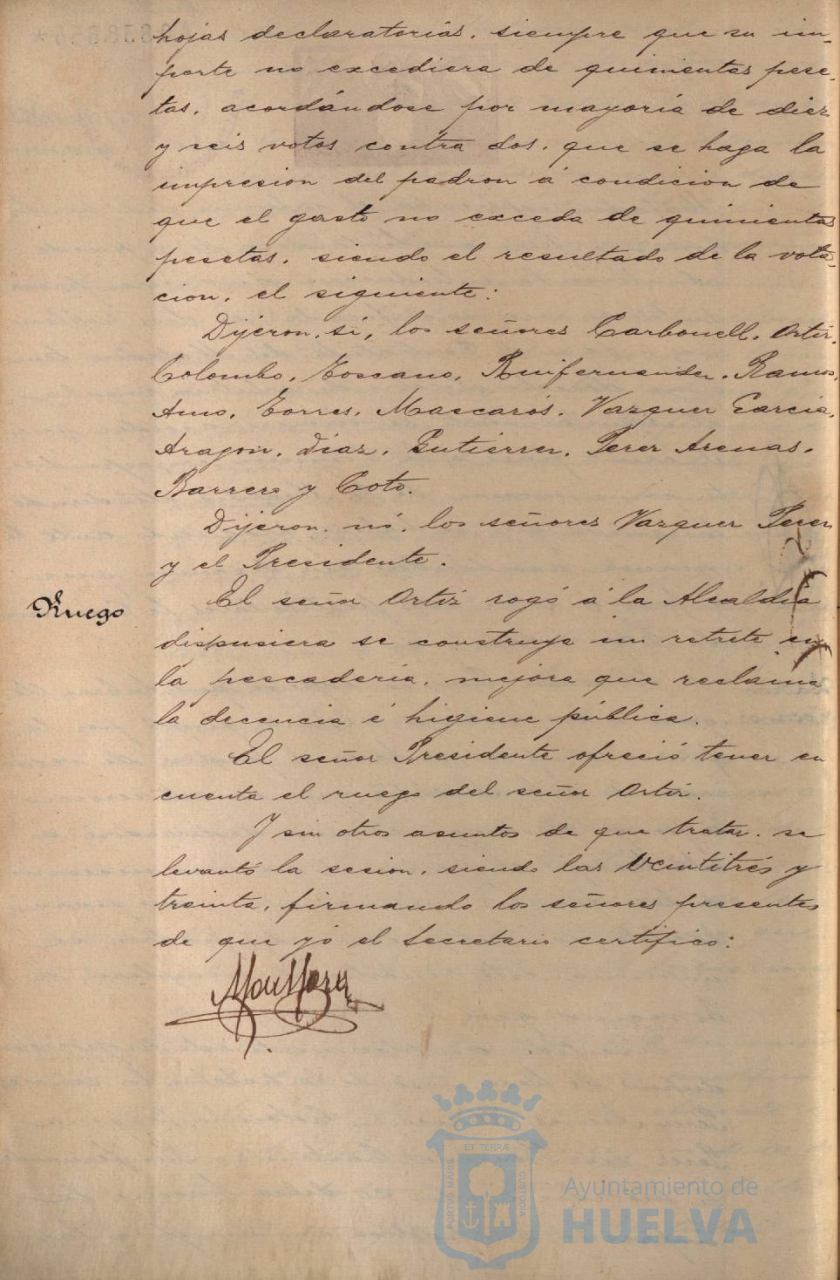 hojas declaratorias, siempre que su im-
porte no excediera de quinientas pese-
tas, acordándose por mayoria de diez
y seis votos contra dos, que se haga la
impresion del padron á condicion de
que el gasto no exceda de quinientas
pesetas, siendo el resultado de la vota-
cion, el siguiente:
Dijeron, si, los señores Carbonell, Ortiz,
Colombo, Toscano, Ruifernandez, Ramos,
Amo, Torres, Mascarós, Vazquez Garcia,
Aragon, Diaz, Gutierrez, Perez Arenas,
Barrero y Coto.
Dijeron, nó, los señores Vazquez Perez
y el Presidente.
Ruego
El señor Ortiz rogó á la Alcaldia
dispusiera se construya un retrete en
la pescaderia, mejora que reclama
la decencia é higiene pública.
El señor Presidente ofreció tener en
cuenta el ruego del señor Ortiz.
Y sin otros asuntos de que tratar, se
levantó la sesion, siendo las veintitrés y
treinta, firmando los señores presentes
de que yo el Secretario certifico:
PORTVS MARIS
ET TERRÆ
CUSTODIA
Ayuntamiento de
HUELVA